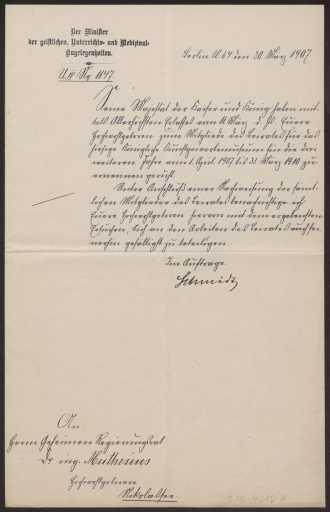 Der Minister
der geistlichen, Unterrichts- und Medizinal-
Angelegenheiten.
Berlin W 64 den 20. März 1907
U IV No 1147
Seine Majestät der Kaiser und König haben mit-
tels Allerhöchsten Erlasses vom 11. März d. Js. Euere
Hochwohlgeboren zum Mitgliede des Beirates für das
hiesige Königliche Kunstgewerbemuseum für die drei
weiteren Jahre vom 1. April 1907 bis 31. März 1910 zu
ernennen geruht.
Unter Anschluß einer Nachweisung der sämt-
lichen Mitglieder des Beirates benachrichtige ich
Euere Hochwohlgeboren hiervon mit dem ergebensten
Ersuchen, Sich an den Arbeiten des Beirates auch fer-
nerhin gefälligst zu beteiligen.
Im Auftrage.
Schmidt
An
Herrn Geheimen Regierungsrat
Dr. ing. Muthesius
Hochwohlgeboren
Nikolassee.